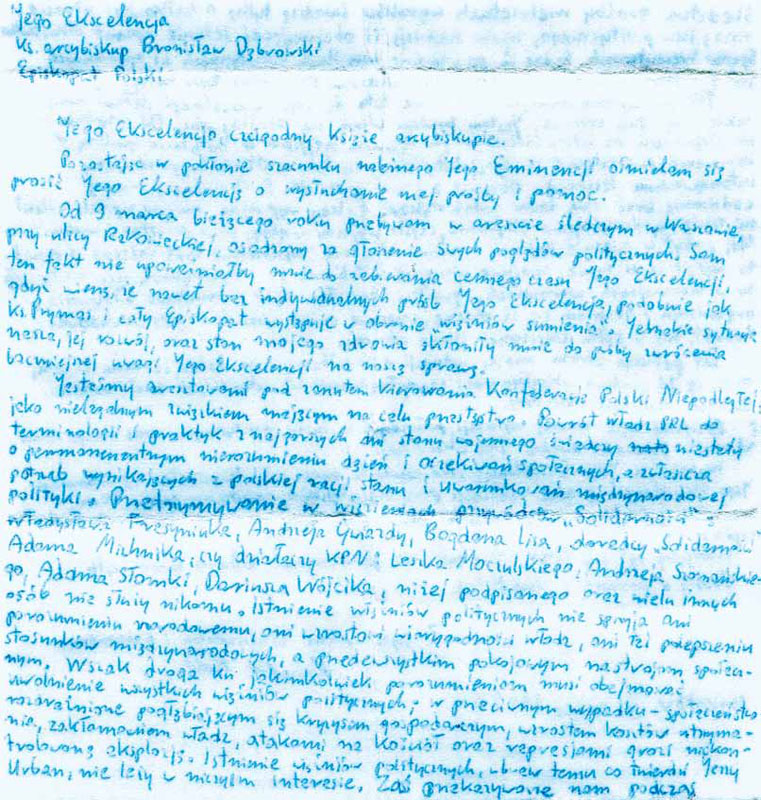 Jego Ekscelencja
Ks. arcybiskup Bronisław Dąbrowski
Episkopat Polski
Jego Ekscelencjo, czcigodny księże arcybiskupie.
Pozostając w pokłonie szacunku należnego Jego Eminencji ośmielam się
prosić Jego Ekscelencję o wysłuchanie mej prośby i pomoc.
Od 9 marca bieżącego roku przebywam w areszcie śledczym w Warszawie,
przy ulicy Rakowieckiej, osadzony za głoszenie swych poglądów politycznych. Sam
ten fakt nie upoważniałby mnie do zabierania cennego czasu Jego Ekscelencji,
gdyż wiem, że nawet bez indywidualnych próśb Jego Ekscelencja, podobnie jak
ks. Prymas i cały Episkopat występuje w obronie więźniów sumienia. Jednakże sytuacja
nasza, jej rozwój, oraz stan mojego zdrowia skłoniły mnie do prośby zwrócenia
baczniejszej uwagi Jego Ekscelencji na naszą sprawę.
Jesteśmy aresztowani pod zarzutem kierowania Konfederacją Polski Niepodległej,
jako nielegalnym związkiem mającym na celu przestępstwo. Powrót władz PRL do
terminologii i praktyk z najgorszych dni stanu wojennego świadczy niestety
o permanentnym nierozumieniu dążeń i oczekiwań społecznych, a zwłaszcza
potrzeb wynikających z polskiej racji stanu i uwarunkowań międzynarodowej
polityki. Przetrzymywanie w więzieniach przywódców „Solidarności":
Władysława Frasyniuka, Andrzeja Gwiazdy, Bogdana Lisa, doradcy „Solidarności"
Adama Michnika, czy działaczy KPN: Leszka Moczulskiego, Andrzeja Szomańskie-
go, Adama Słomki, Dariusza Wójcika, niżej podpisanego oraz wielu innych
osób nie służy nikomu. Istnienie więźniów politycznych nie sprzyja ani
porozumieniu narodowemu, ani wzrostowi wiarygodności władz, ani też polepszeniu
stosunków międzynarodowych, a przedewszystkim pokojowym nastrojom społecz-
nym. Wszak droga ku jakimkolwiek porozumieniom musi obejmować
uwolnienie wszystkich więźniów politycznych; w przeciwnym wypadku - społeczeństwo
rozdrażnione pogłębiającym się kryzysem gospodarczym, wzrostem kosztów utrzyma-
nia, zakłamaniem władz, atakami na Kościół oraz represjami grozi niekon-
trolowaną eksplozją. Istnienie więźniów politycznych, wbrew temu co twierdzi Jerzy
Urban, nie leży w niczyim interesie. Zaś przekazywane nam podczas